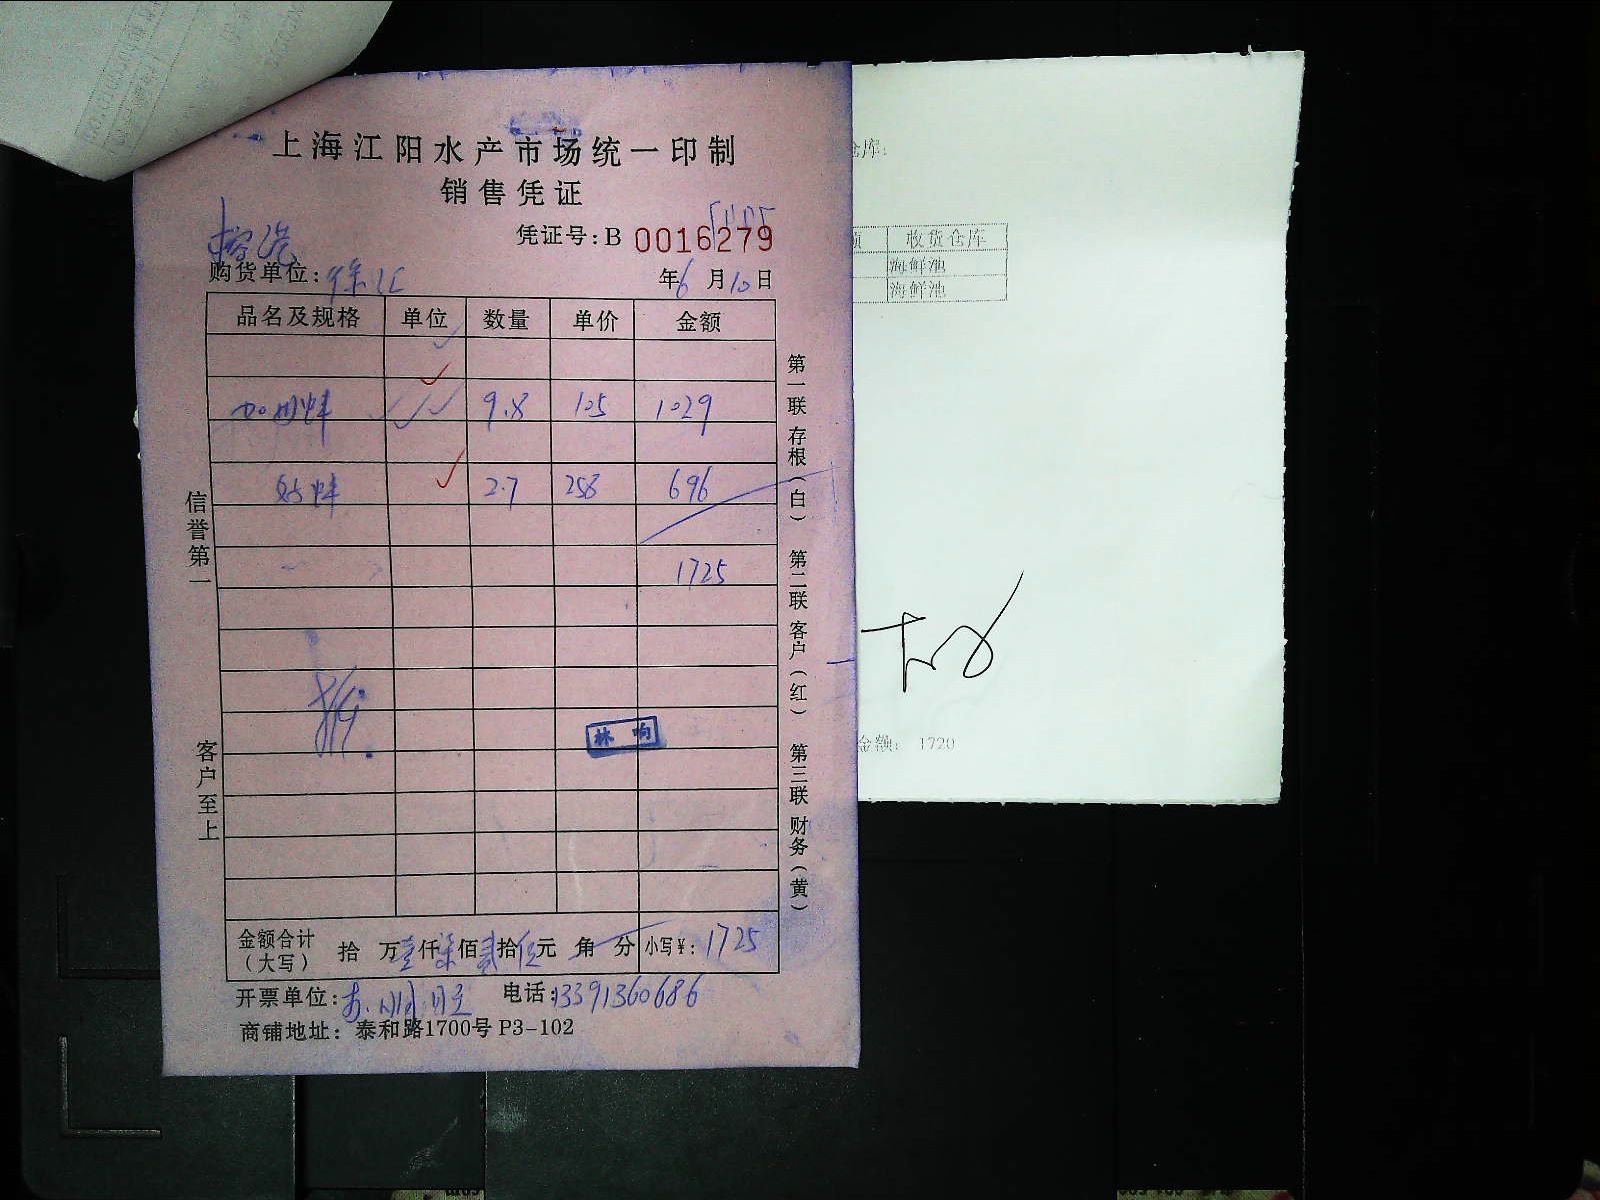 上海江阳水产市场统一印制
销售凭证
凭证号:B 0016279
购货单位:徐汇 年6月10日
品名及规格 单位 数量 单价 金额
9.8 105 1029
2.7 258 696
1725
林响
金额合计(大写) 拾 万壹仟柒佰贰拾伍元 角 分 小写¥: 1725
开票单位: 电话:13391360686
商铺地址: 泰和路1700号 P3-102
信誉第一
客户至上
第一联 存根(白) 第二联 客户(红) 第三联 财务(黄)
仓库:
收货仓库
海鲜池
海鲜池
金额: 1720